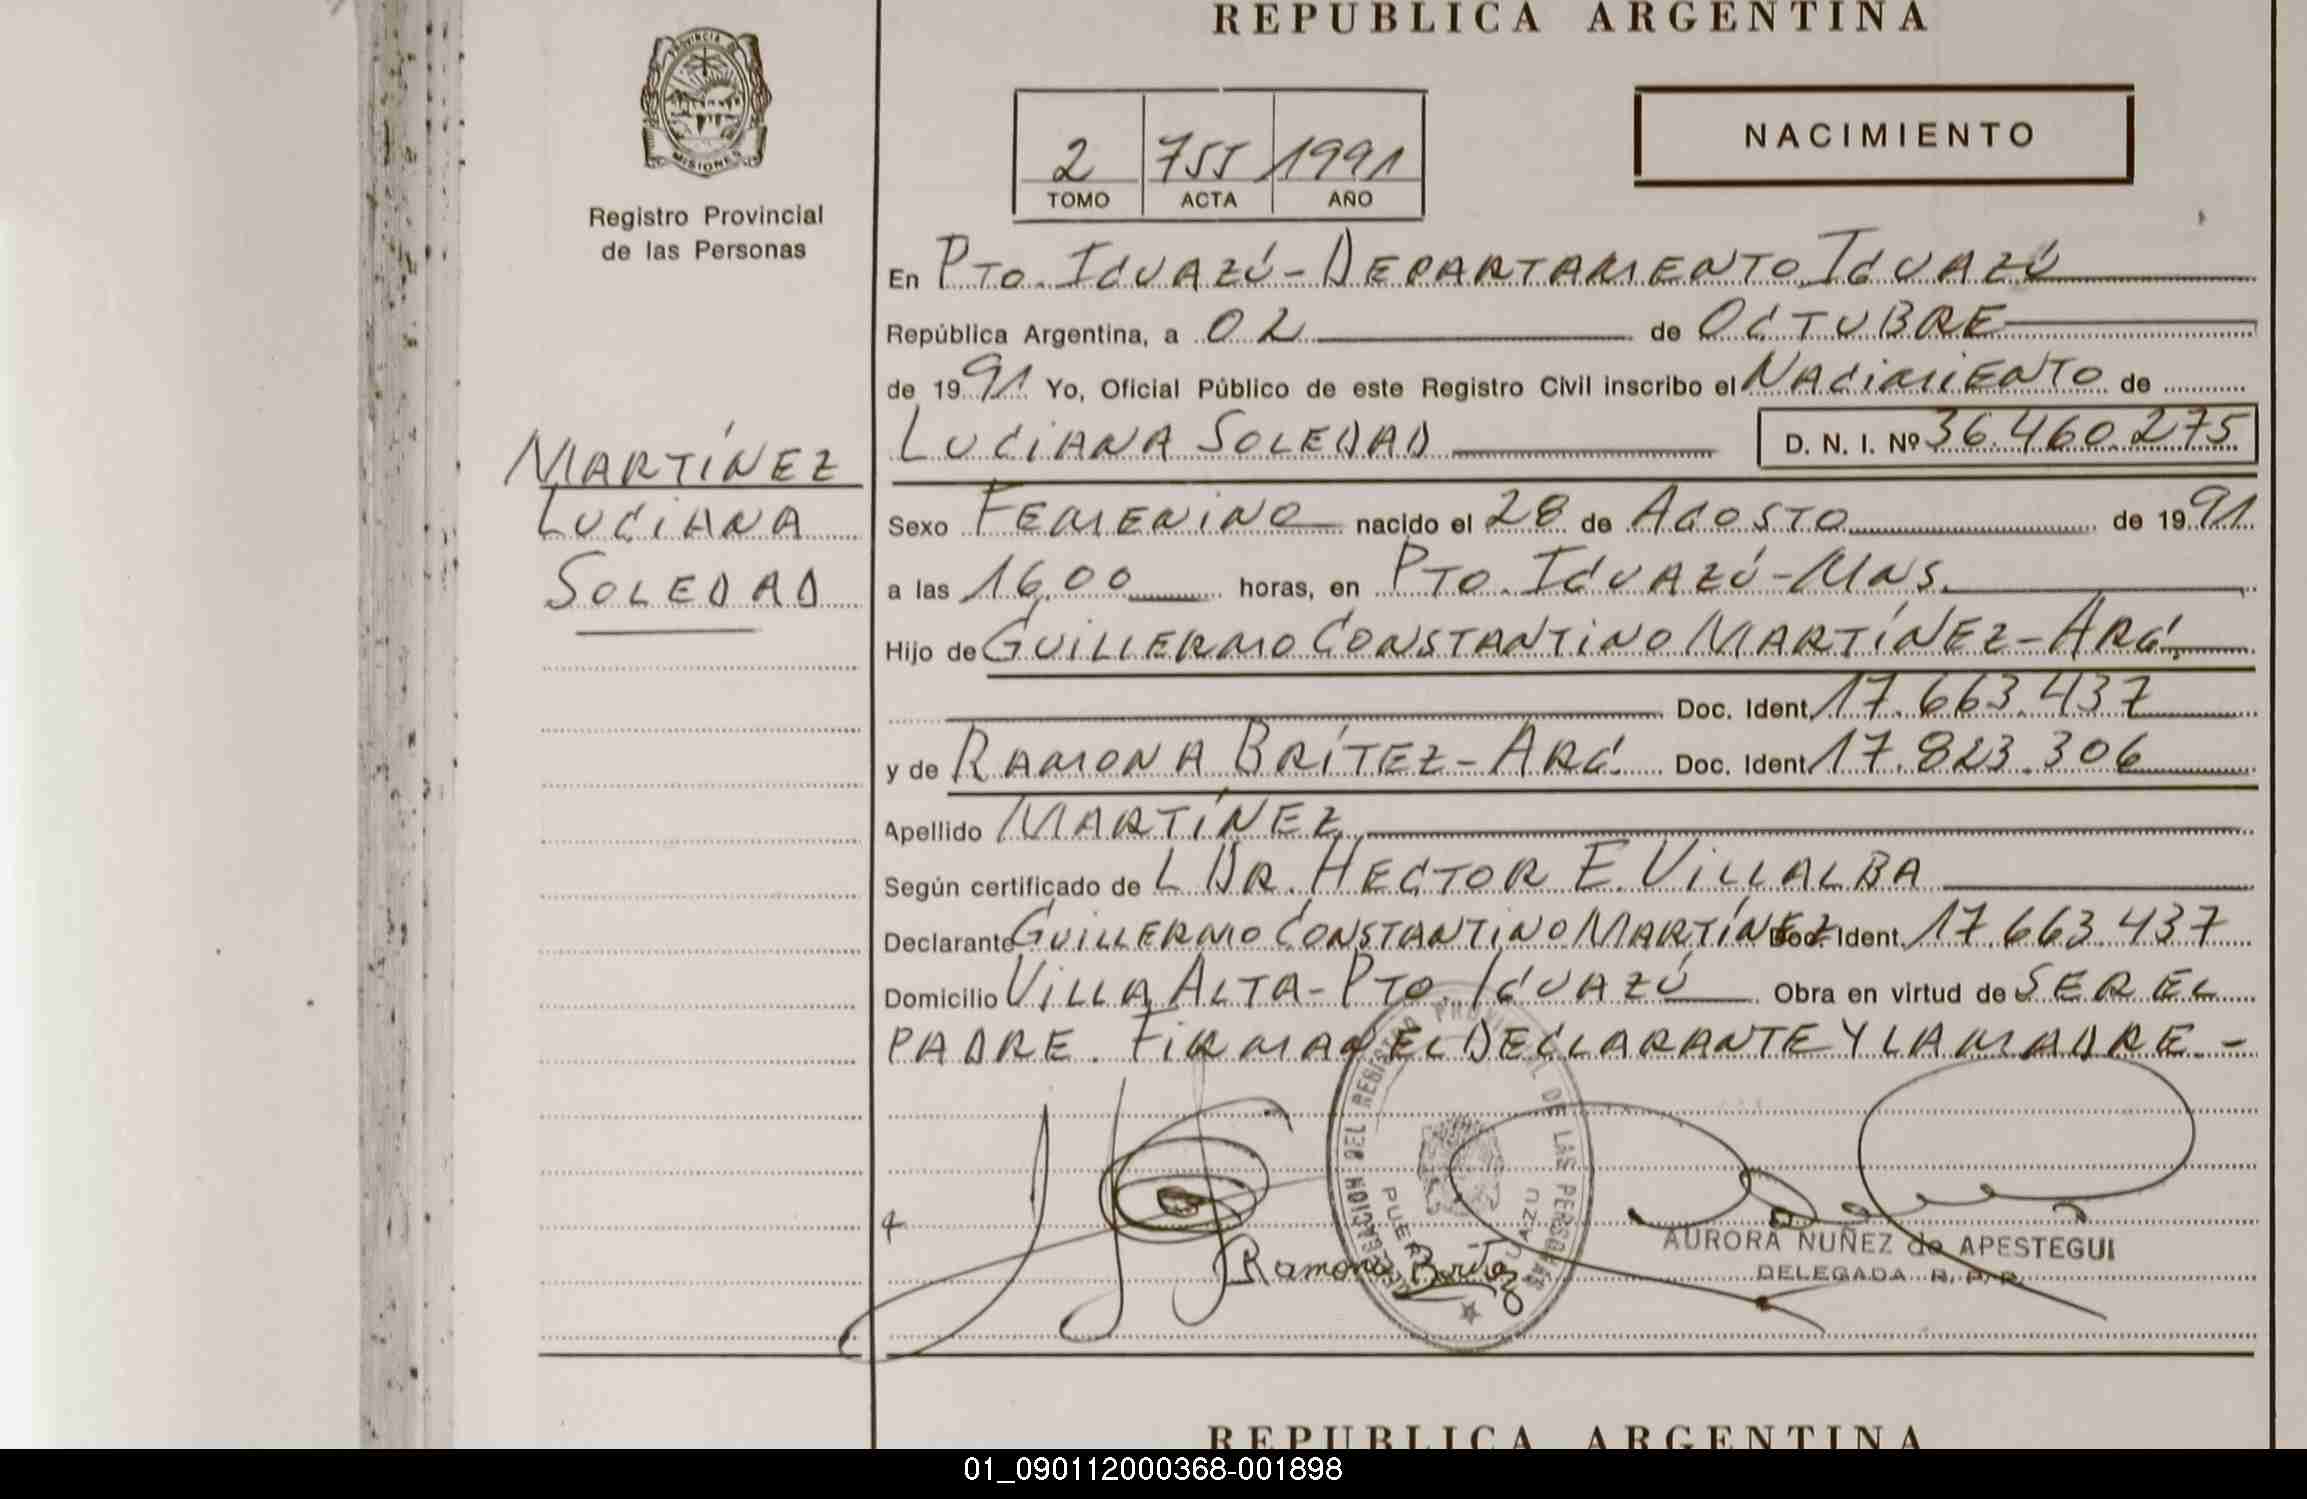 REPUBLICA ARGENTINA
PROVINCIA DE
MISIONES
Registro Provincial
de las Personas
2 755 1991
TOMO ACTA AÑO
NACIMIENTO
En PTO. IGUAZÚ - DEPARTAMENTO IGUAZÚ
República Argentina, a 02 de OCTUBRE
de 1991 Yo, Oficial Público de este Registro Civil inscribo el NACIMIENTO de
LUCIANA SOLEDAD D. N. I. Nº 36.460.275
MARTÍNEZ
LUCIANA
SOLEDAD
Sexo FEMENINO nacido el 28 de AGOSTO de 1991
a las 16,00 horas, en PTO. IGUAZÚ - MNS.
Hijo de GUILLERMO CONSTANTINO MARTÍNEZ - ARG.
Doc. Ident. 17.663.437
y de RAMONA BRÍTEZ - ARG. Doc. Ident. 17.823.306
Apellido MARTÍNEZ
Según certificado de L DR. HECTOR E. VILLALBA
Declarante GUILLERMO CONSTANTINO MARTÍNEZ Doc. Ident. 17.663.437
Domicilio VILLA ALTA - PTO. IGUAZÚ Obra en virtud de SER EL
PADRE. FIRMAN EL DECLARANTE Y LA MADRE. -
DELEGACION DEL REGISTRO PROVINCIAL DE LAS PERSONAS
PUERTO IGUAZU
Ramona Britez
AURORA NUÑEZ de APESTEGUI
DELEGADA R. P. P.
REPUBLICA ARGENTINA
01_090112000368-001898